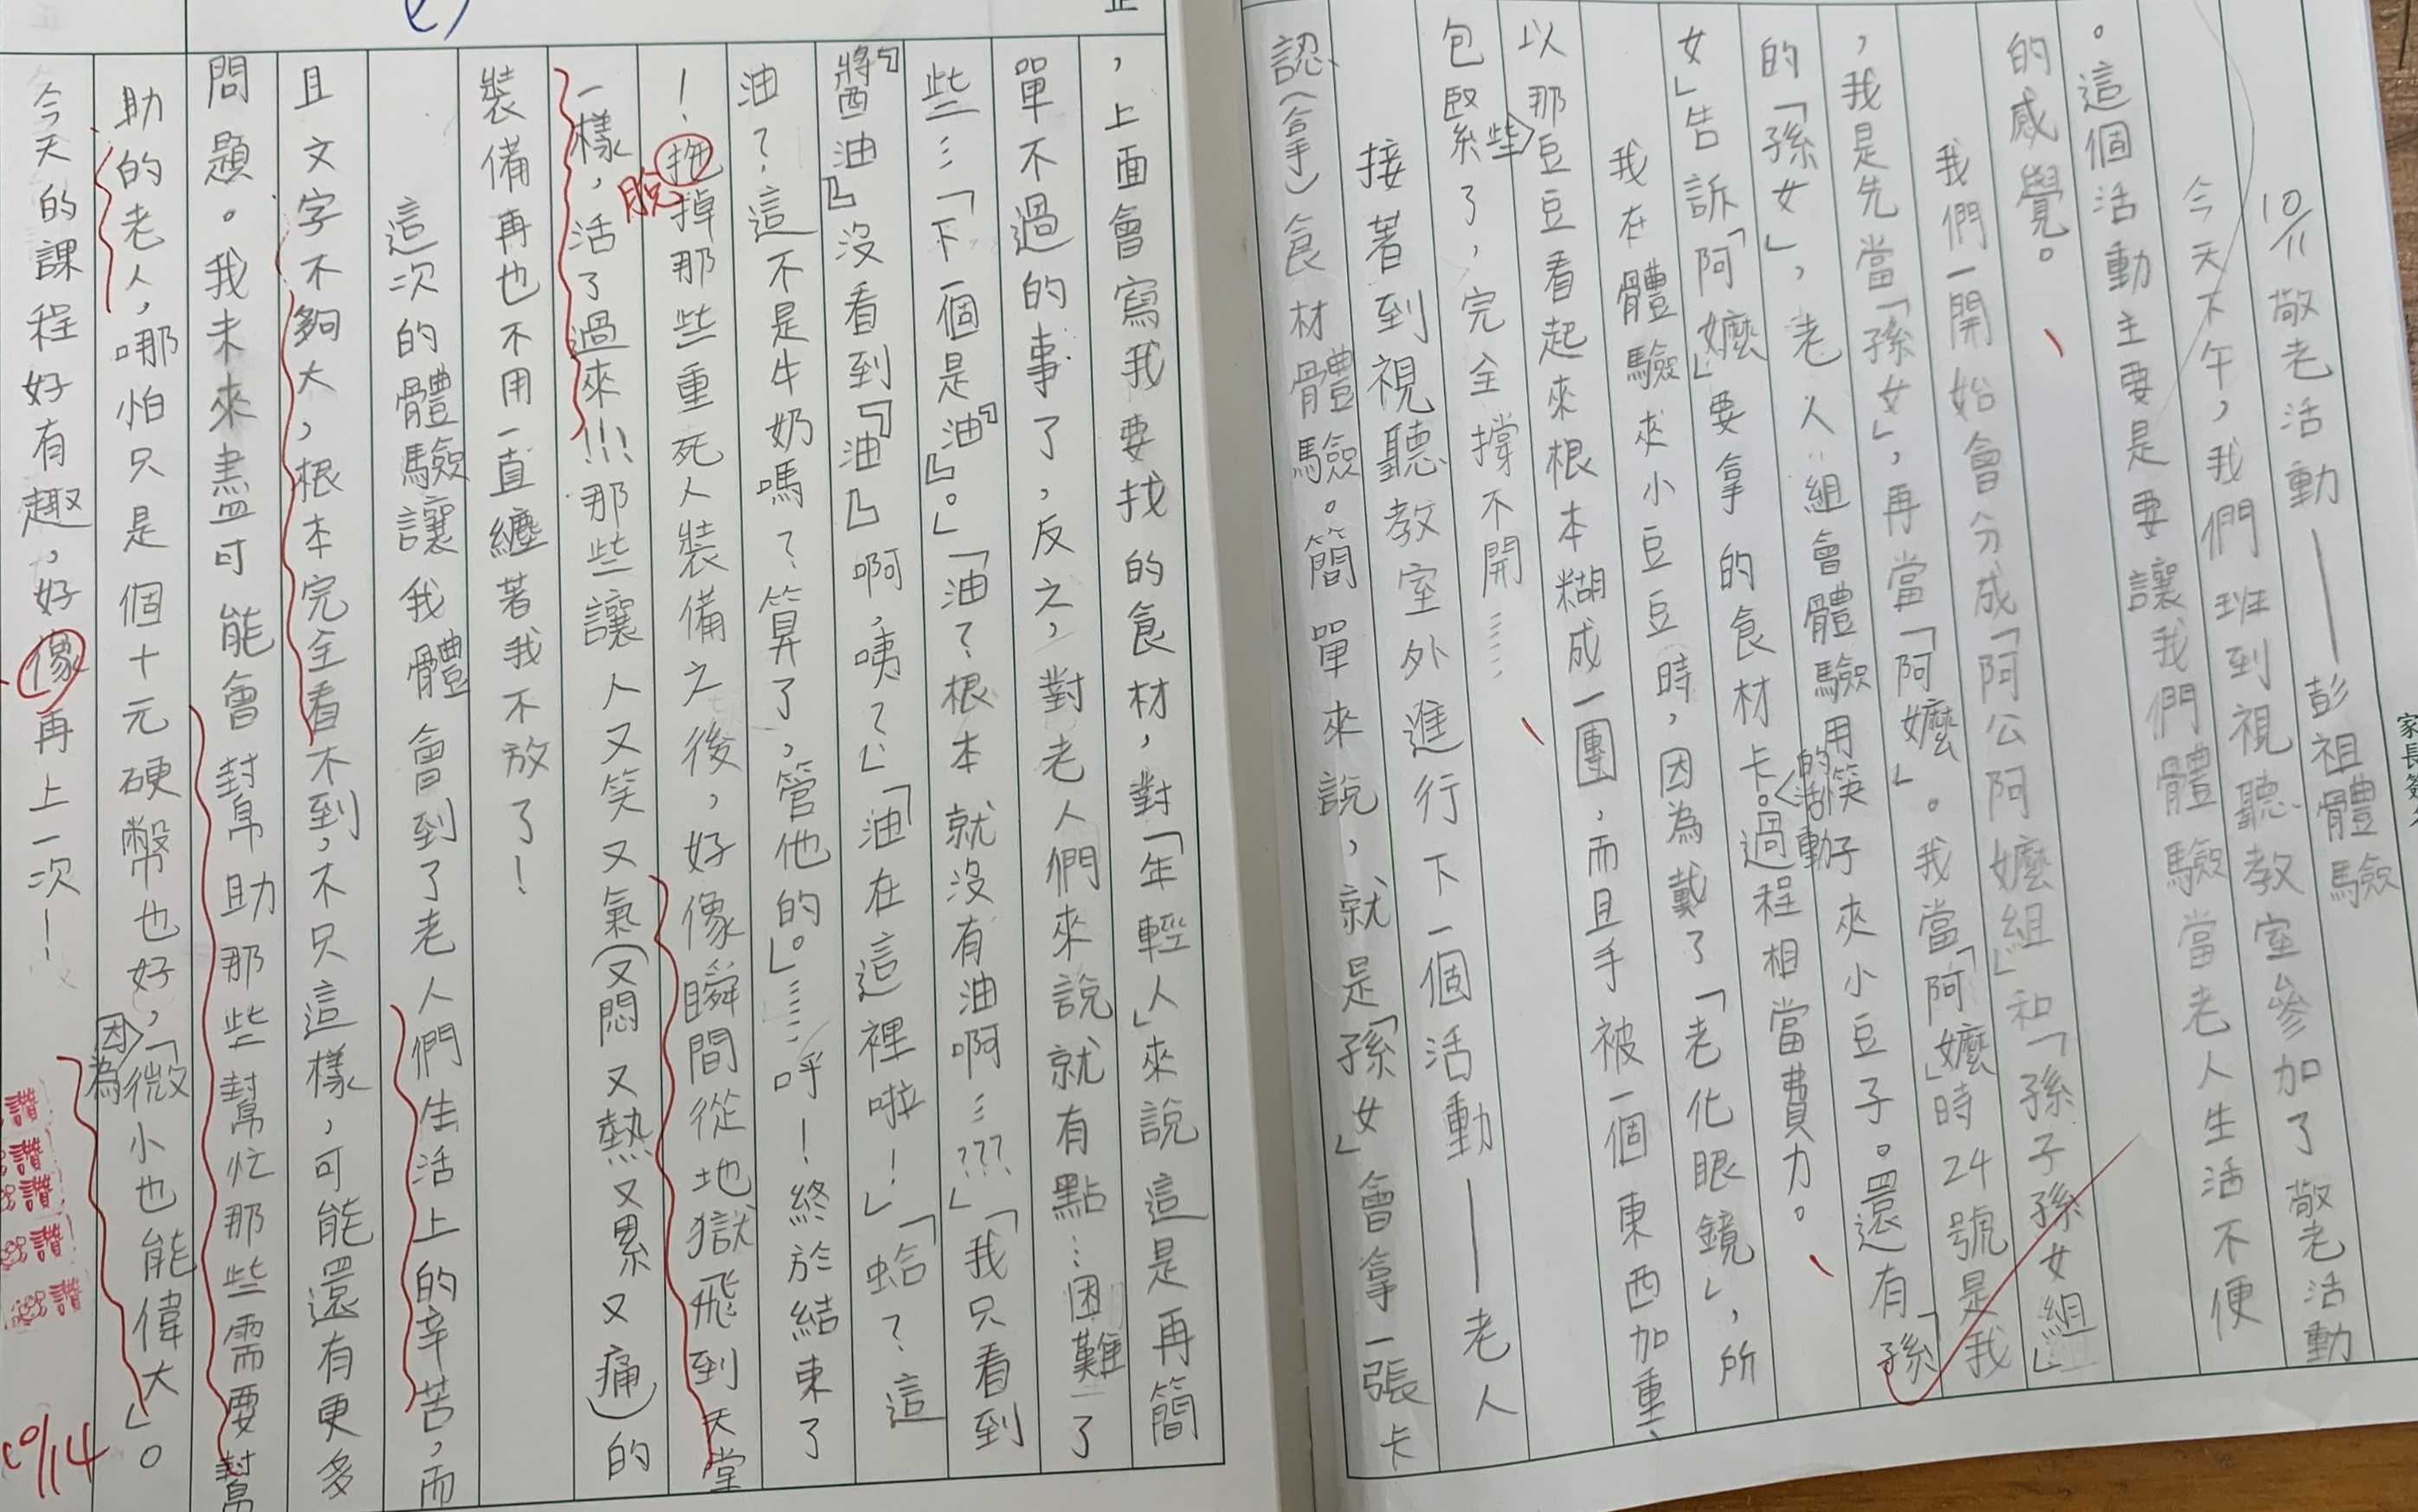 10/11敬老活動——彭祖體驗
今天下午，我們班到視聽教室參加了敬老活動
。這個活動主要是要讓我們體驗當老人生活不便
的感覺。
我們一開始會分成「阿公阿嬤組」和「孫子孫女組」
，我是先當「孫女」，再當「阿嬤」。我當「阿嬤」時24號是我
的「孫女」，老人組會體驗用筷子夾小豆子的活動。還有「孫
女」告訴「阿嬤」要拿的食材卡。過程相當費力。
我在體驗夾小豆豆時，因為戴了「老化眼鏡」，所
以那豆豆看起來根本糊成一團，而且手被一個東西加重、
包緊些了，完全撐不開……
接著到視聽教室外進行下一個活動——老人
認(拿)食材體驗。簡單來說，就是「孫女」會拿一張卡
，上面會寫我要找的食材，對「年輕人」來說這是再簡
單不過的事了，反之，對老人們來說就有點…困難了
些…「下一個是『油』。」「油？根本就沒有油啊…???」「我只看到
『醬油』沒看到『油』啊，咦？」「油在這裡啦！」「蛤？這
油？這不是牛奶嗎？算了，管他的。」……呼！終於結束了
！拖掉那些重死人裝備之後，好像瞬間從地獄飛到天堂
脫
一樣，活了過來!!!那些讓人又笑又氣(又悶又熱又累又痛)的
裝備再也不用一直纏著我不放了！
這次的體驗讓我體會到了老人們生活上的辛苦，而
且文字不夠大，根本完全看不到，不只這樣，可能還有更多
問題。我未來盡可能會幫助那些幫忙那些需要幫
助的老人，哪怕只是個十元硬幣也好，因為「微小也能偉大」。
今天的課程好有趣，好像再上一次！
讚!
讚!
讚!
讚!
讚
10/14